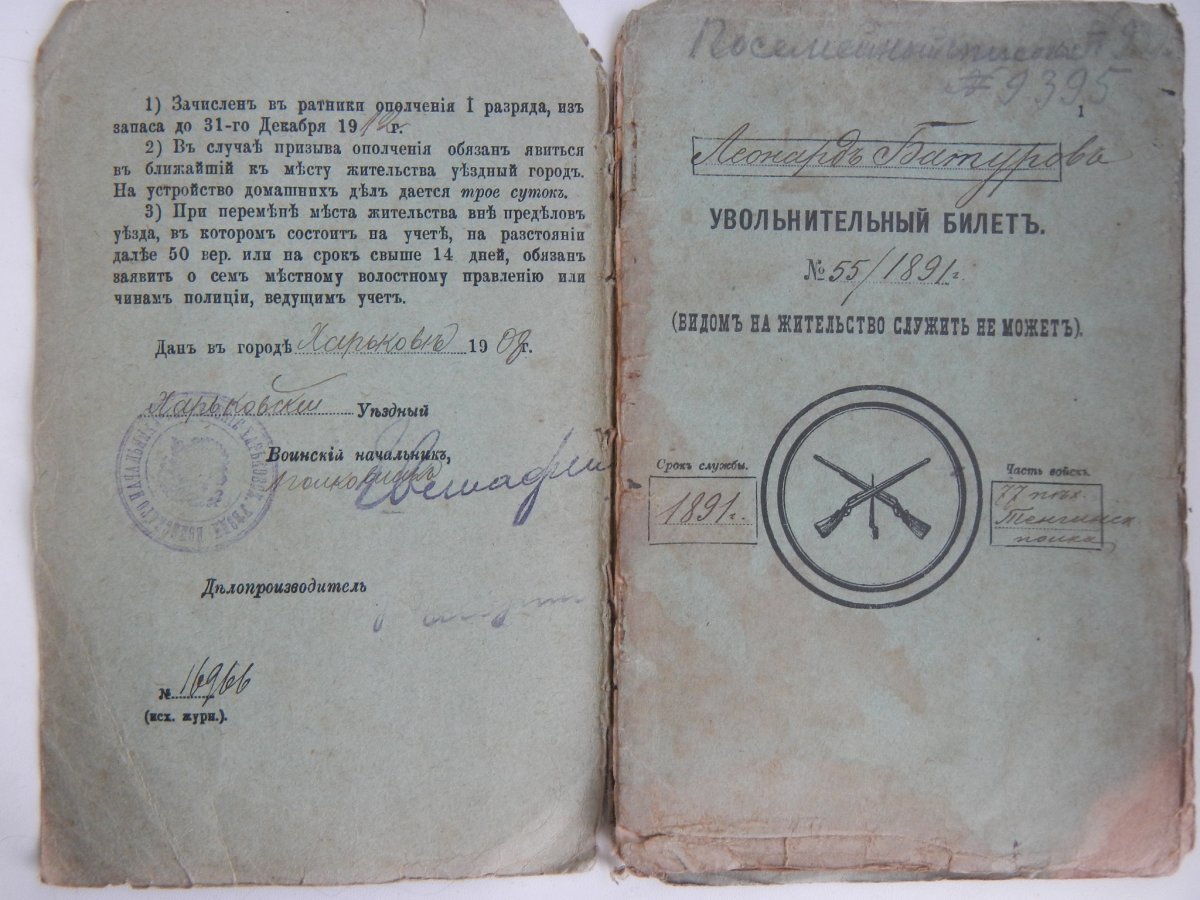 1) Зачисленъ въ ратники ополченія I разряда, изъ
запаса до 31-го Декабря 1912 г.
2) Въ случаѣ призыва ополченія обязанъ явиться
въ ближайшій къ мѣсту жительства уѣздный городъ.
На устройство домашнихъ дѣлъ дается трое сутокъ.
3) При перемѣнѣ мѣста жительства внѣ предѣловъ
уѣзда, въ которомъ состоитъ на учетѣ, на разстояніи
далѣе 50 вер. или на срокъ свыше 14 дней, обязанъ
заявить о семъ мѣстному волостному правленію или
чинамъ полиціи, ведущимъ учетъ.
Данъ въ городѣ Харьковѣ 1909 г.
Харьковскій Уѣздный
Воинскій начальникъ,
Полковникъ
Дѣлопроизводитель
№ 16966
(исх. журн.).
Посемейный списокъ
№ 9395
1
Леонардъ Батуровъ
УВОЛЬНИТЕЛЬНЫЙ БИЛЕТЪ.
№ 55/1891 г.
(ВИДОМЪ НА ЖИТЕЛЬСТВО СЛУЖИТЬ НЕ МОЖЕТЪ).
Срокъ службы.
1891 г.
Часть войскъ.
77 пѣх.
Тенгинск.
полка